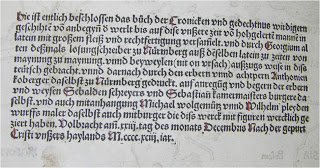 Hie ist entlich beschlossen das bůch der Cronicken vnd gedechtnus wirdigern
geschihtē vō anbegyn̄ d werlt bis auf dise vnßere zeit vō hohgelertē mann̄ in
latein mit großem fleiß vnd rechtfertigung versamelt. vnd durch Georgium al
ten deßmals losungschreiber zu Nürmberg auß derselben latein zu zeiten von
maynung zu maynung. vnnd beyweylen (nit on vrsach) auß zugs weise in diss
teütsch gebracht. vnnd darnach durch den erbern vnnd achtpern Anthonien
koberger daselbst zu Nürmberg gedruckt. auf anregung vnd begern der erbern
vnd weysen Sebalden schreyers vnd Sebastian kamermaisters burgere da
selbst. vnd auch mitanhangung Michael wolgemůtz vnnd Wilhelm pleyden
wurffs maler daselbst auch mitburger die diss werck mit figuren wercklich ge
ziert haben. Volbracht am .xxiij. tag des monats Decembris Nach der gepurt
Cristi vnßers haylands M.cccc.xciij. iar.